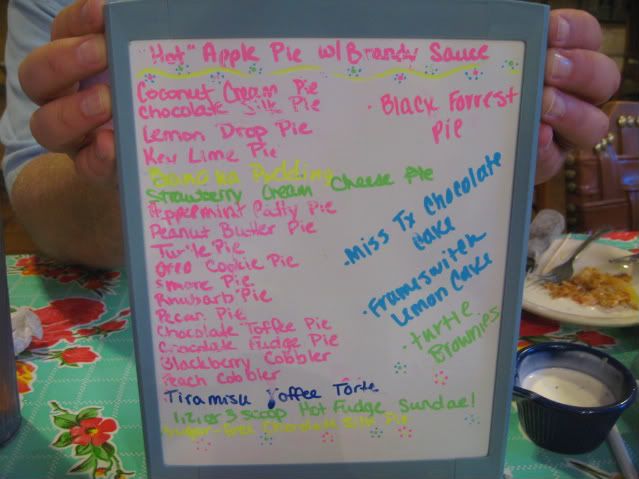 "Hot" Apple Pie w/ Brandy Sauce
Coconut Cream Pie
Chocolate Silk Pie
Lemon Drop Pie
Key Lime Pie
Banana Pudding
Strawberry Cream Cheese Pie
Peppermint Patty Pie
Peanut Butter Pie
Turtle Pie
Oreo Cookie Pie
Smore Pie
Rhubarb Pie
Pecan Pie
Chocolate Toffee Pie
Chocolate Fudge Pie
Blackberry Cobbler
Peach Cobbler
Tiramisu Toffee Torte
1, 2, or 3 scoop Hot Fudge Sundae!
Sugar-Free Chocolate Silk Pie
· Black Forrest
Pie
· Miss Tx Chocolate
Cake
· Frameswitch
Lemon Cake
· Turtle
Brownies